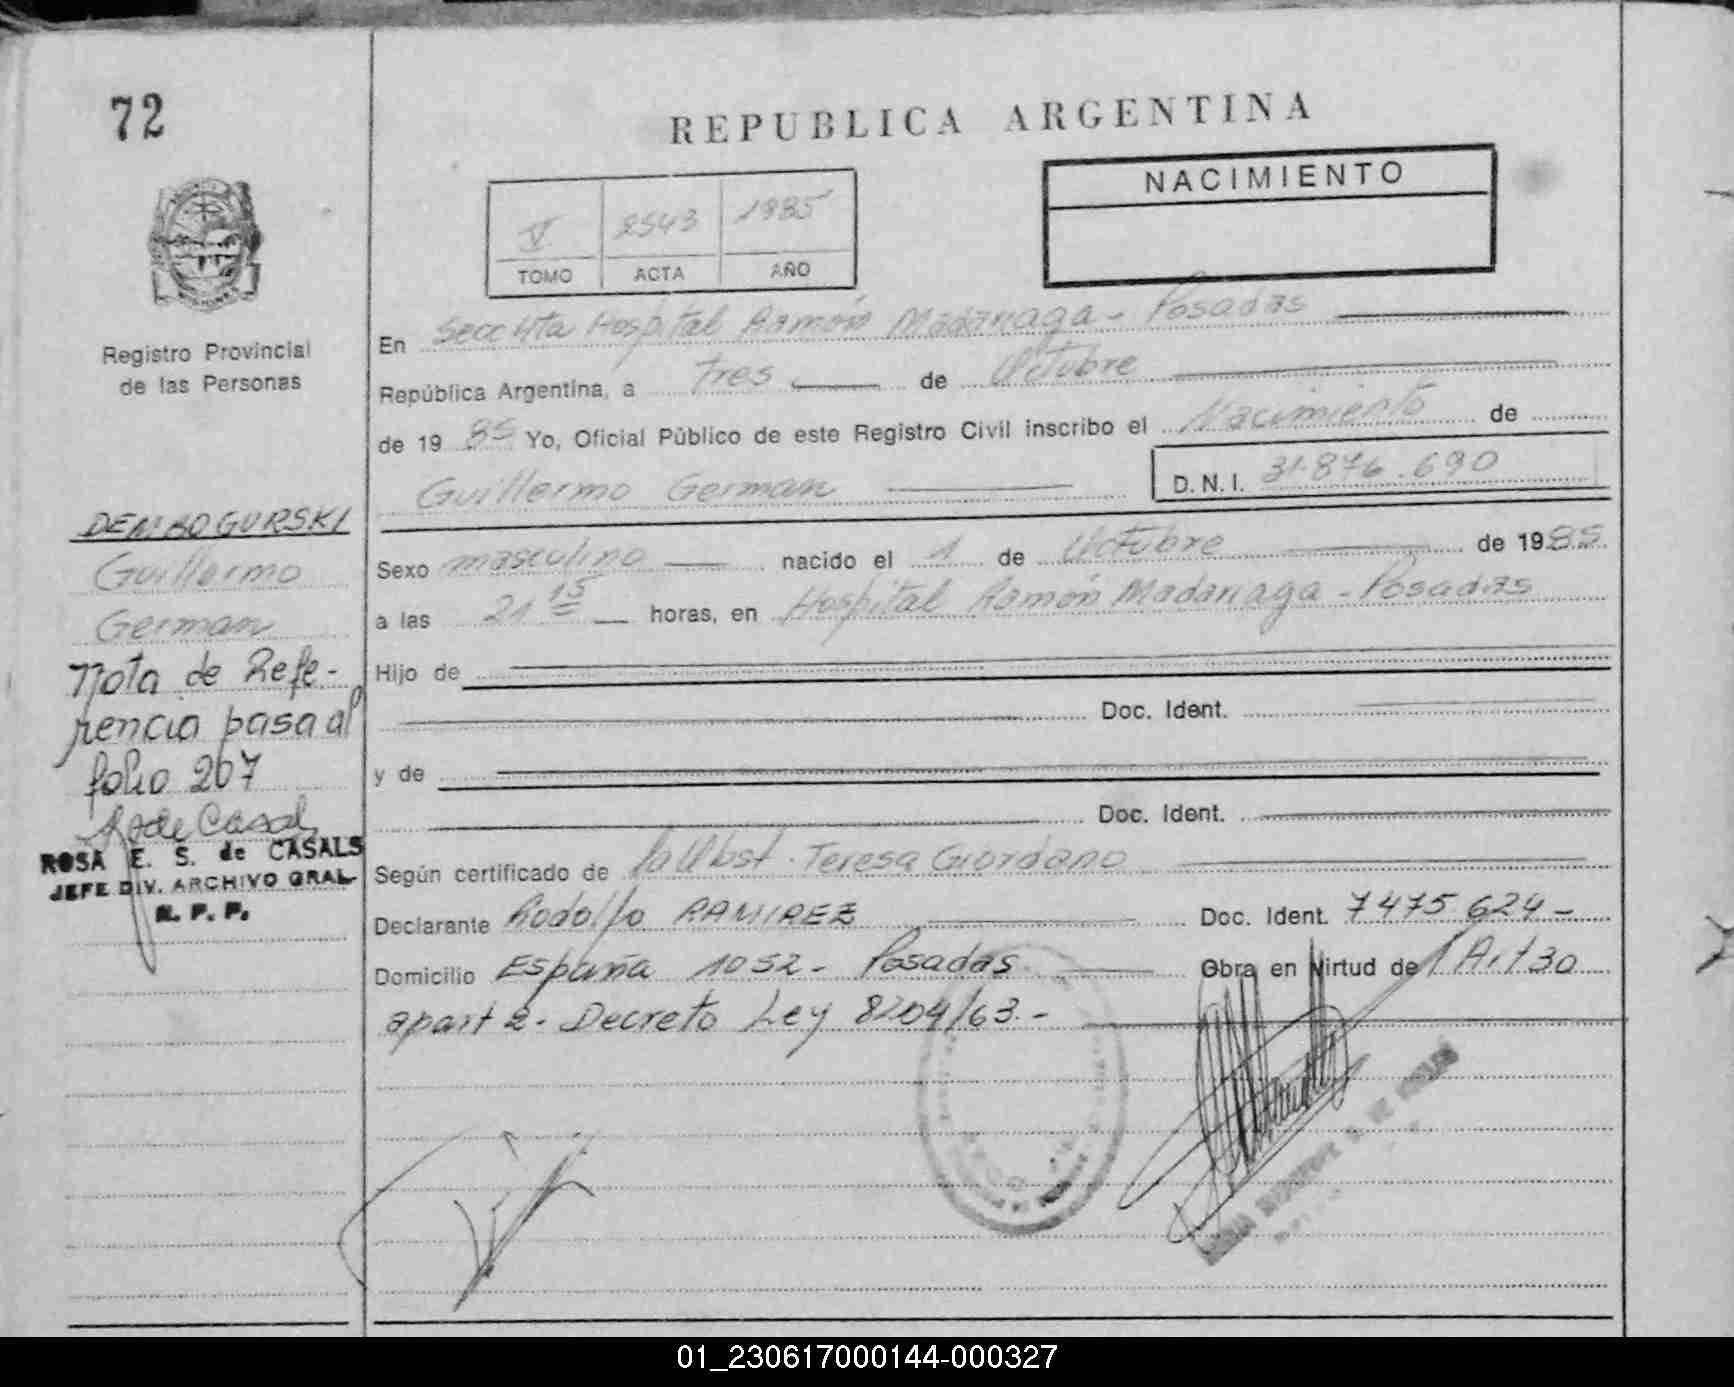 72
REPUBLICA ARGENTINA
NACIMIENTO
V 2543 1985
TOMO ACTA AÑO
Registro Provincial
de las Personas
En Secc 4ta Hospital Ramón Madariaga - Posadas
República Argentina, a Tres de Octubre
de 19 85 Yo, Oficial Público de este Registro Civil inscribo el Nacimiento de
Guillermo German D.N.I. 31.876.690
DEMBOGURSKI
Guillermo
German
Nota de Refe-
rencia pasa al
folio 207
R de Casals
ROSA E. S. de CASALS
JEFE DIV. ARCHIVO GRAL
R. P. P.
Sexo masculino nacido el 1 de Octubre de 1985
a las 21 15 horas, en Hospital Ramón Madariaga - Posadas
Hijo de
Doc. Ident.
y de
Doc. Ident.
Según certificado de la Obst. Teresa Giordano
Declarante Rodolfo RAMIREZ Doc. Ident. 7475624-
Domicilio España 1052 - Posadas Obra en Virtud del Art 30
apart 2 - Decreto Ley 8204/63.-
01_230617000144-000327